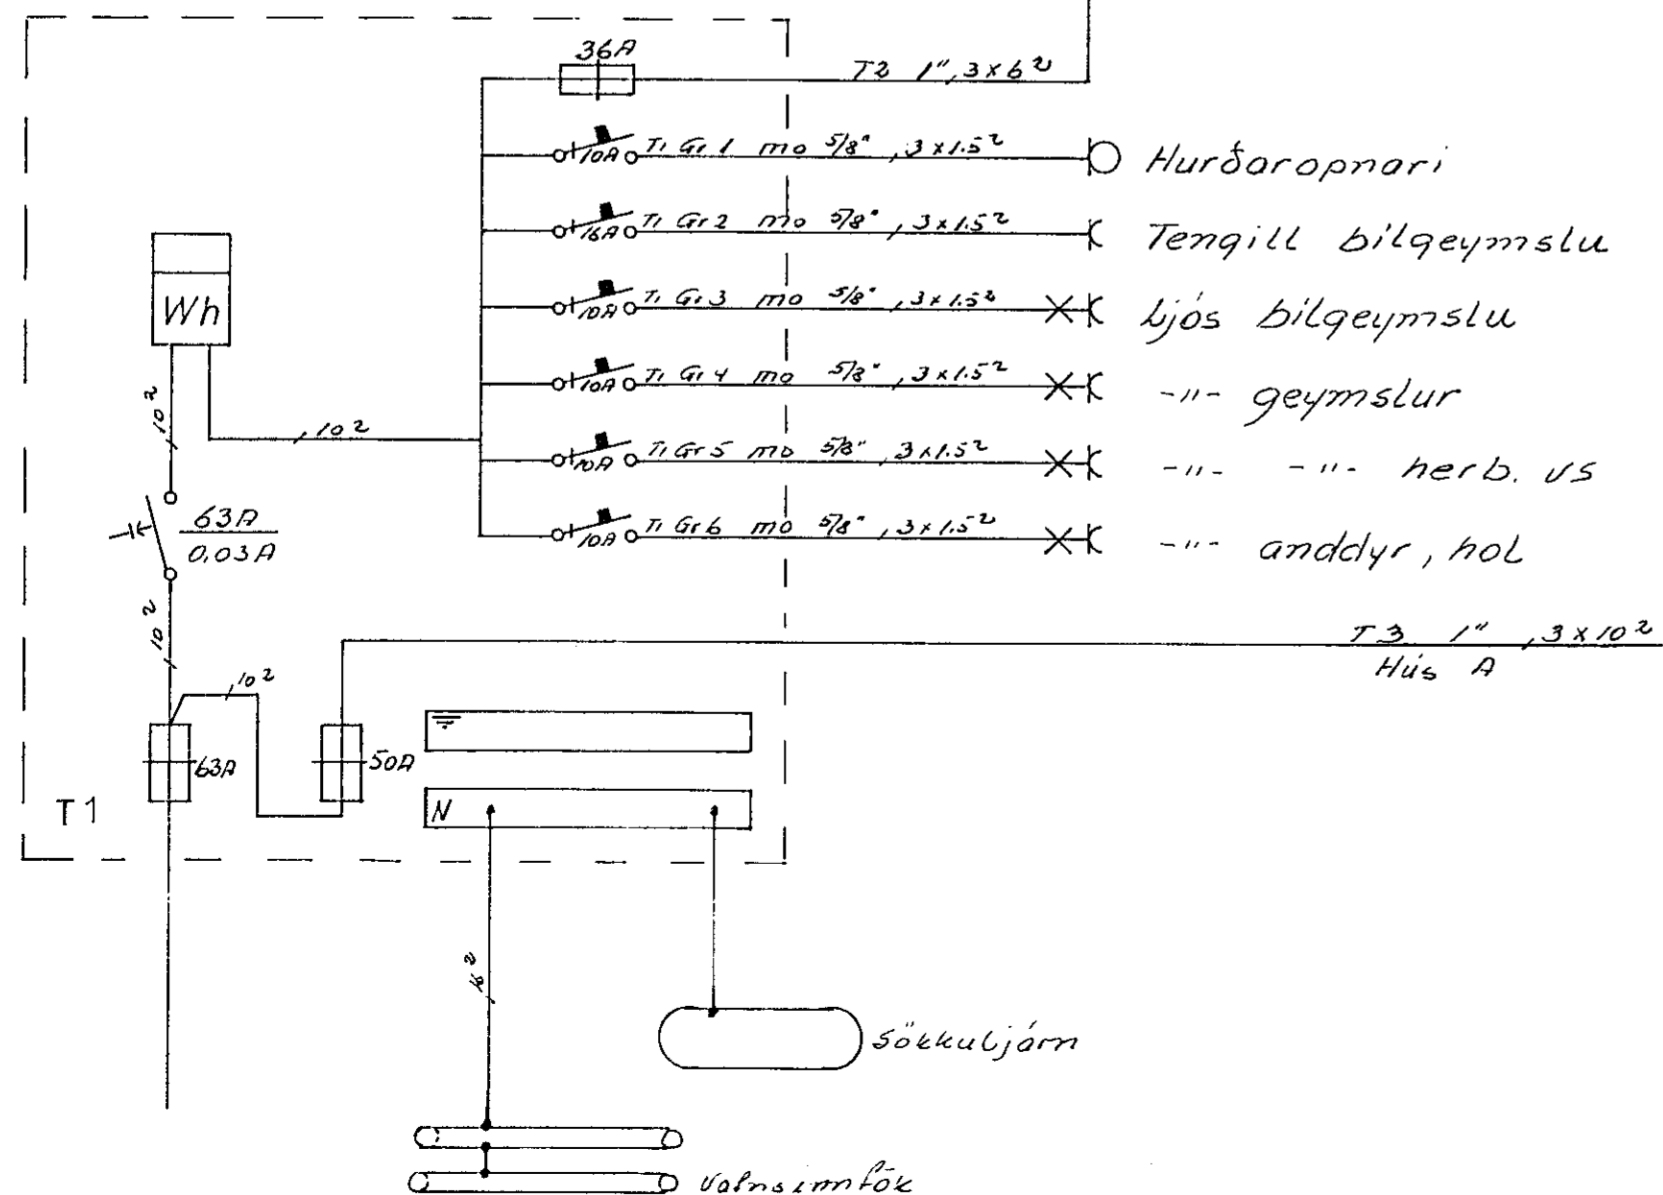 36A
T2 1", 3x6²
10A T1 Gr1 mo 5/8", 3x1.5² Hurðaropnari
16A T1 Gr2 mo 5/8", 3x1.5² Tengill bílgeymslu
10A T1 Gr3 mo 5/8", 3x1.5² Ljós bílgeymslu
10A T1 Gr4 mo 5/8", 3x1.5² -"- geymslur
10A T1 Gr5 mo 5/8", 3x1.5² -"- -"- herb. vs
10A T1 Gr6 mo 5/8", 3x1.5² -"- anddyr, hol
Wh
10²
10²
63A
0,03A
10²
T3 1", 3x10²
Hús A
10²
63A
50A
T1
N
Sökkuljárn
Vatnsinntök